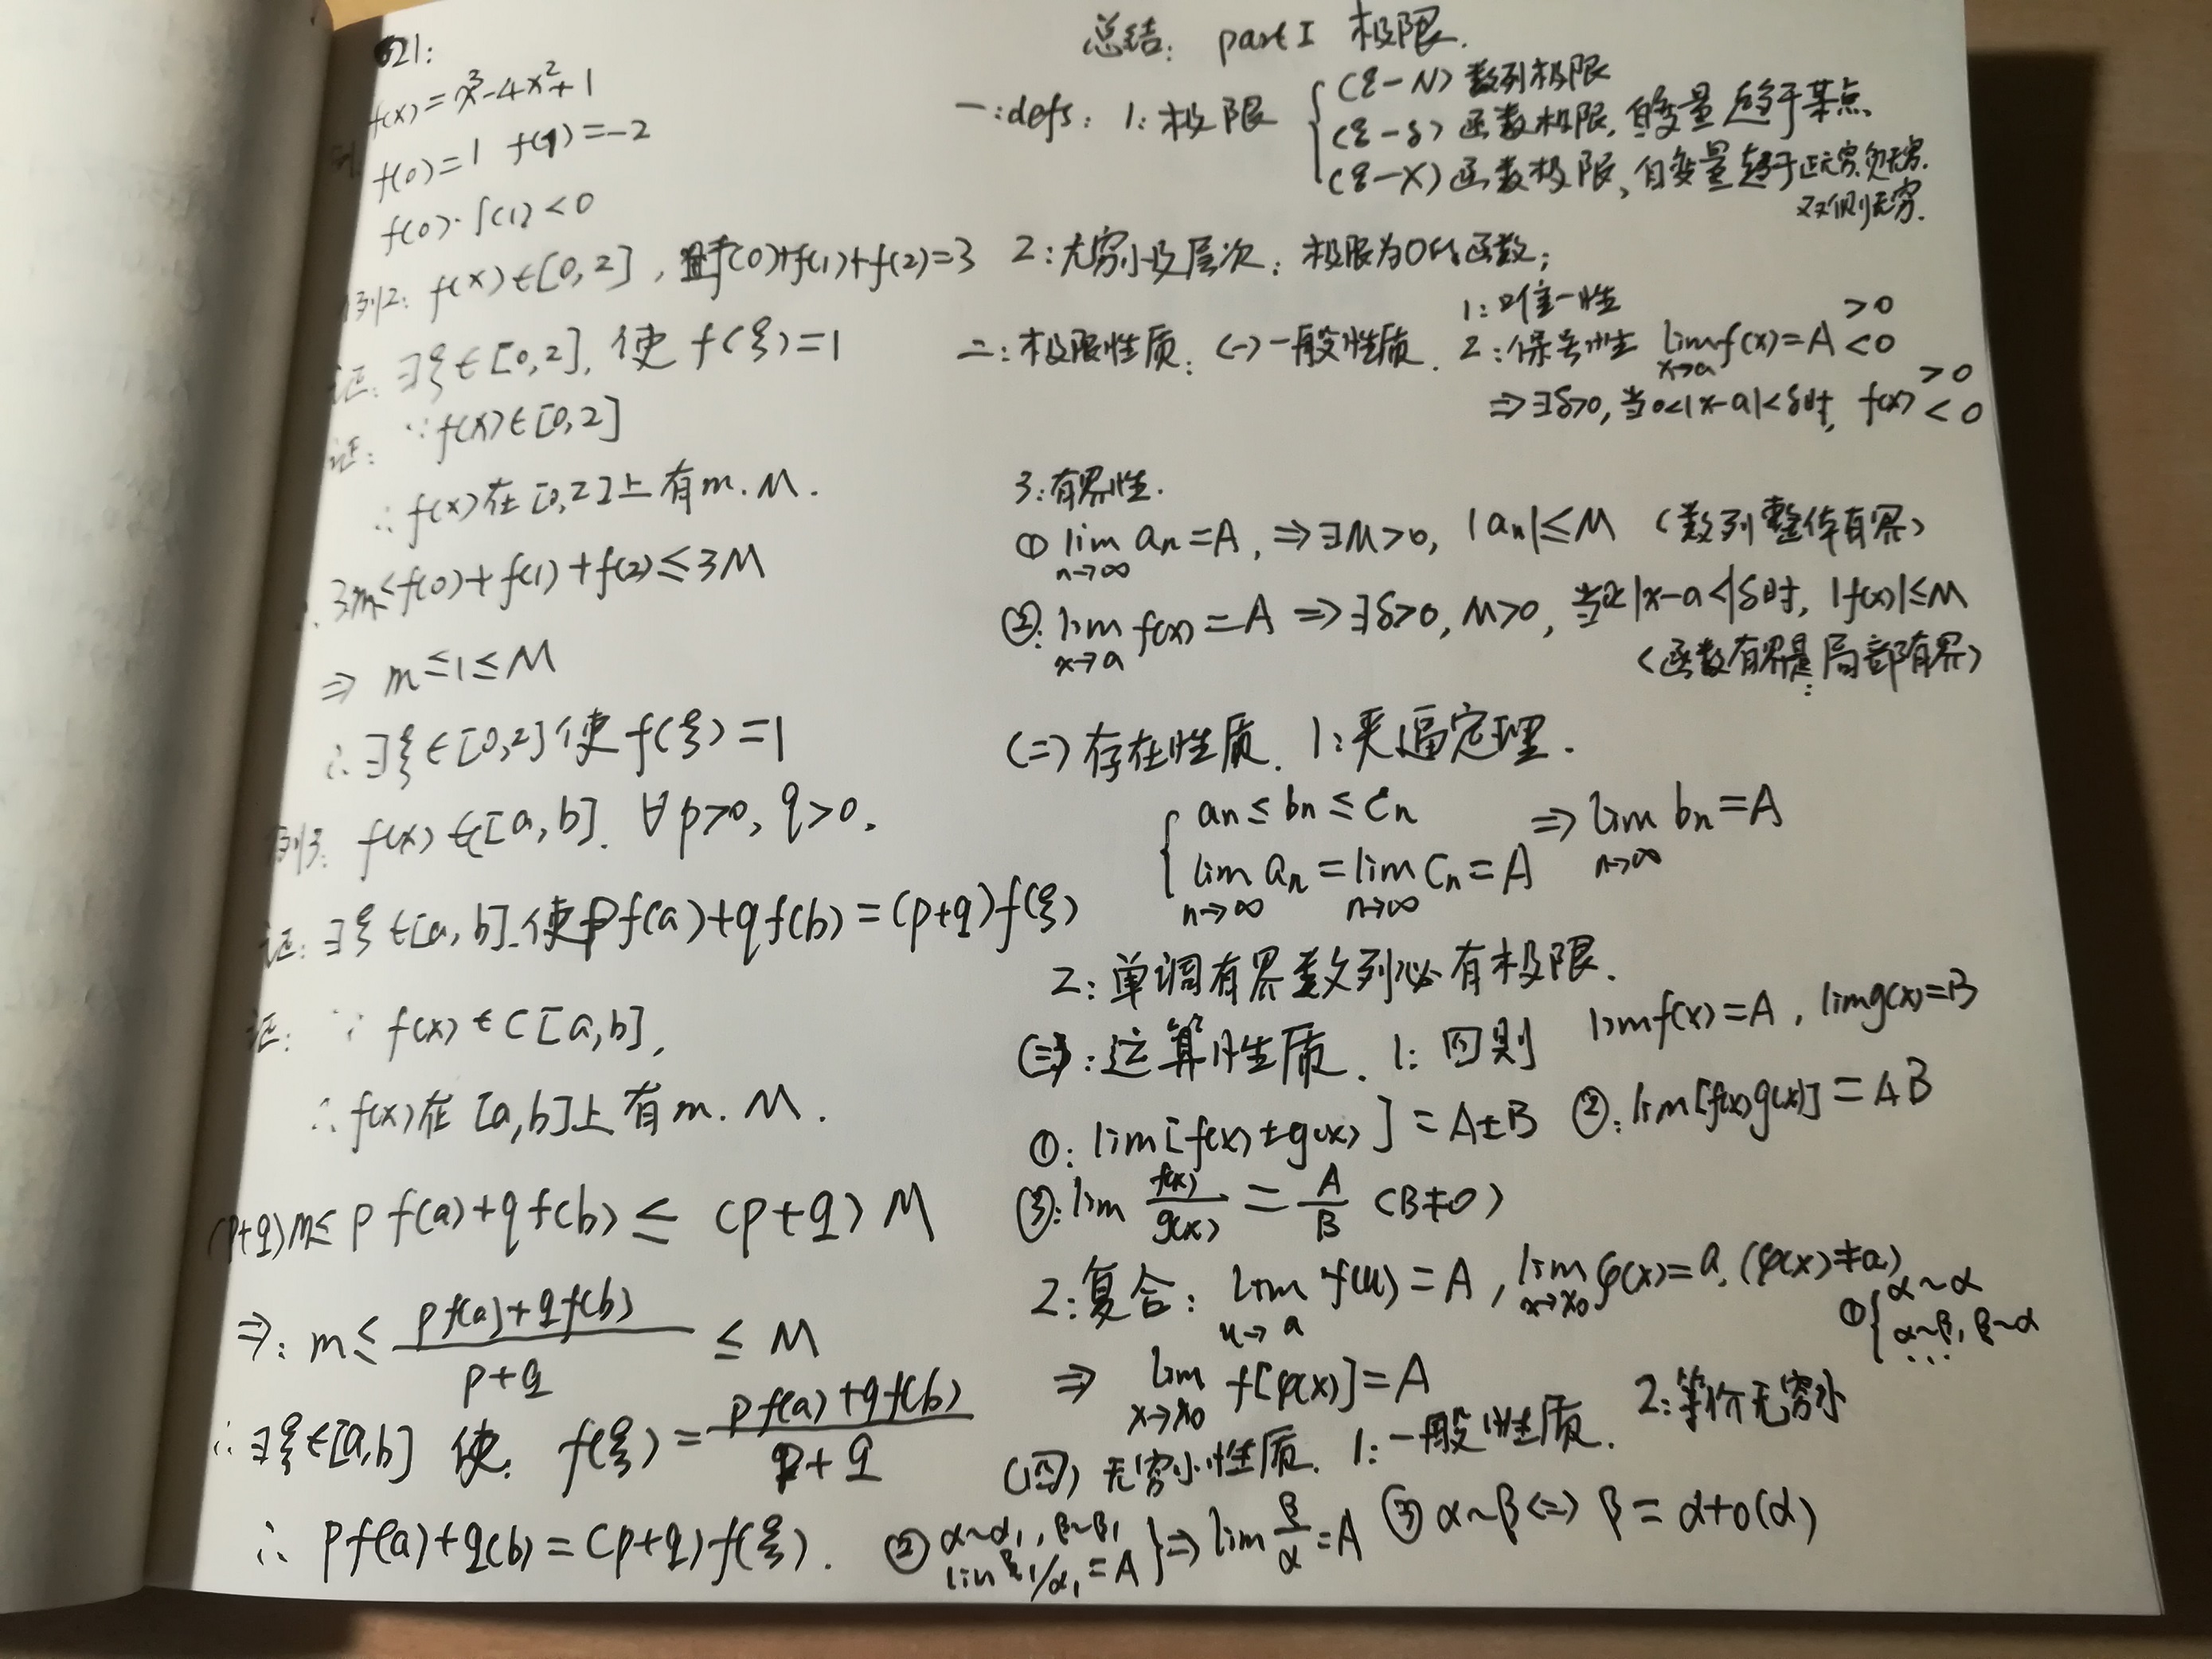 f(x)=x³-4x²+1
f(0)=1 f(1)=-2
f(0)·f(1)<0
例2: f(x)∈[0,2], 且f(0)+f(1)+f(2)=3
证: ∃ξ∈[0,2], 使 f(ξ)=1
证: ∵f(x)∈[0,2]
∴f(x)在[0,2]上有m.M.
3m≤f(0)+f(1)+f(2)≤3M
⇒ m≤1≤M
∴∃ξ∈[0,2]使f(ξ)=1
例3: f(x)∈[a,b]. ∀p>0, q>0,
证: ∃ξ∈[a,b].使pf(a)+qf(b)=(p+q)f(ξ)
证: ∵ f(x)∈C[a,b],
∴f(x)在[a,b]上有m.M.
(p+q)m≤pf(a)+qf(b)≤(p+q)M
⇒: m≤ (pf(a)+qf(b))/(p+q) ≤M
∴∃ξ∈[a,b] 使: f(ξ)=(pf(a)+qf(b))/(p+q)
∴ pf(a)+q(b)=(p+q)f(ξ).
总结: part I 极限.
一:defs: 1:极限 { (ε-N)数列极限
(ε-δ)函数极限,自变量趋于某点
(ε-X)函数极限,自变量趋于正无穷,负无穷.
双侧无穷.
2:无穷小及层次: 极限为0的函数;
二:极限性质: (一)一般性质. 1:唯一性
2:保号性 lim x→a f(x)=A >0 <0
⇒∃δ>0,当0<|x-a|<δ时, f(x) >0 <0
3:有界性.
① lim n→∞ an=A, ⇒∃M>0, |an|≤M (数列整体有界)
②: lim x→a f(x)=A ⇒∃δ>0,M>0, 当|x-a<|δ时, |f(x)|≤M
(函数有界是局部有界)
(二)存在性质. 1:夹逼定理.
{ an≤bn≤cn
lim n→∞ an=lim n→∞ cn=A ⇒ lim n→∞ bn=A
2:单调有界数列必有极限.
(三):运算性质. 1:四则 limf(x)=A, limg(x)=B
①: lim[f(x)±g(x)]=A±B ②:lim[f(x)g(x)]=AB
③:lim f(x)/g(x) = A/B (B≠0)
2:复合: lim u→a f(u)=A, lim x→x0 φ(x)=a, (φ(x)≠a)
⇒ lim x→x0 f[φ(x)]=A
(四)无穷小性质. 1:一般性质. 2:等价无穷小
①{ α~α
α~β, β~α
...
②α~α1, β~β1
lim β1/α1=A }⇒lim β/α=A ③α~β⇔β=α+o(α)